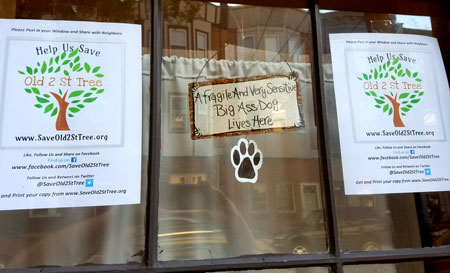 Please Post in your Window and Share with Neighbors
Help Us Save
Old 2 St Tree
www.SaveOld2STree.org
Like, Follow Us and Share on Facebook
Find us on f
www.facebook.com/SaveOld2StTree
Follow Us and Retweet on Twitter
@SaveOld2StTree
and Print your copy from www.SaveOld2StTree.org
A Fragile And Very Sensitive
Big Ass Dog
Lives Here
Please Post in your Window and Share with Neighbors
Help Us Save
Old 2 St Tree
www.SaveOld2STree.org
Like, Follow Us and Share on Facebook
Find us on f
www.facebook.com/SaveOld2StTree
Follow Us and Retweet on Twitter
@SaveOld2StTree
Get and Print your copy from www.SaveOld2StTree.org